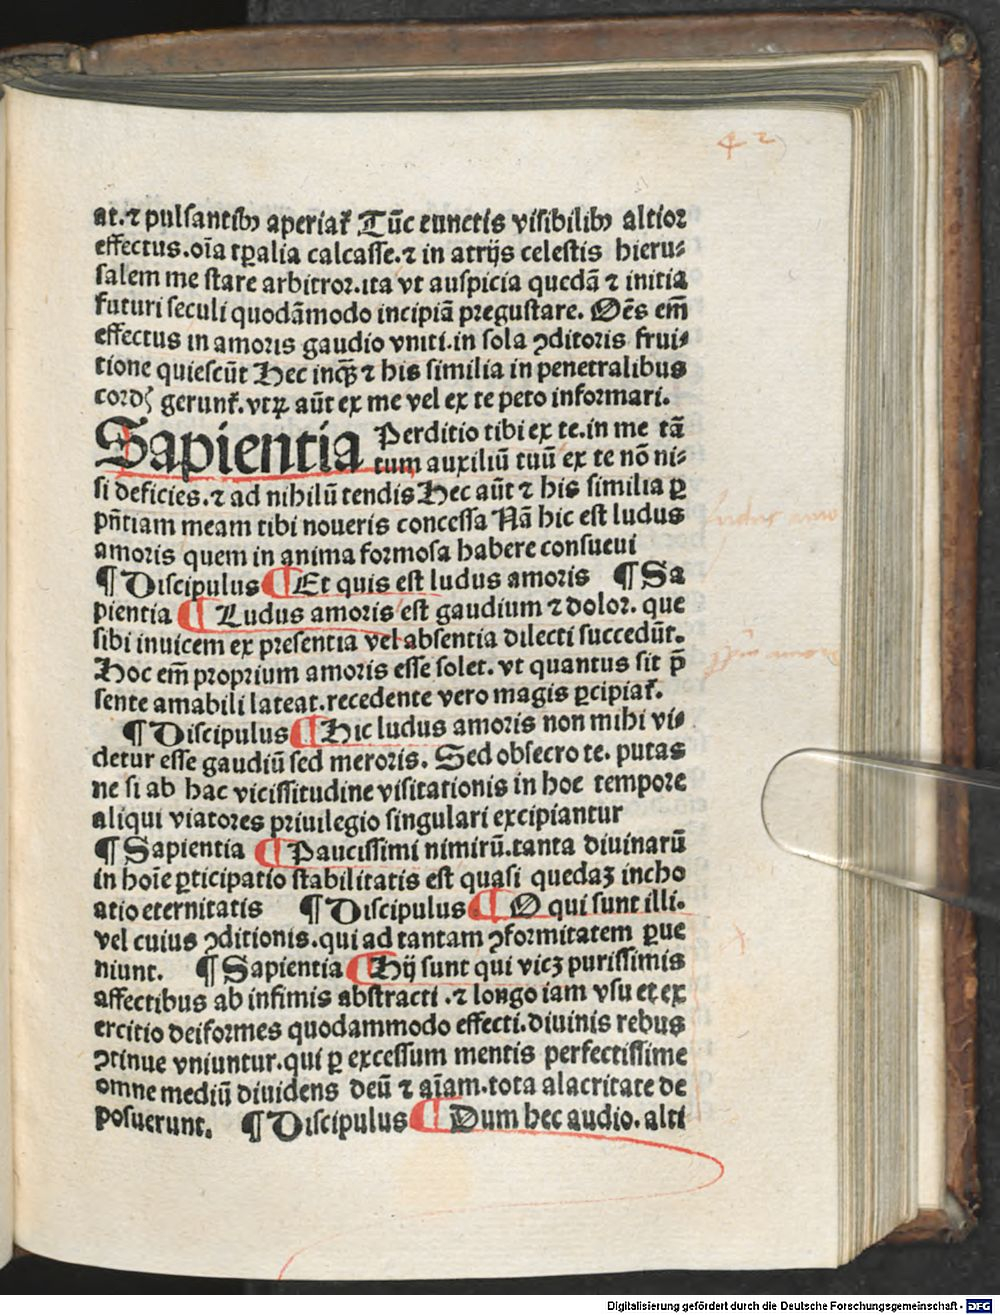 42
at.⁊ pulsantibꝰ aperiat᷑ Tūc cunctis visibilibꝰ altior
effectus.oīa tꝑalia calcasse.⁊ in atrijs celestis hieru⸗
salem me stare arbitror.ita vt auspicia quedā ⁊ initia
futuri seculi quodāmodo incipiā pregustare. Oēs em̄
effectus in amoris gaudio vniti.in sola ꝯditoris frui⸗
tione quiescūt Hec inqᷓ ⁊ his similia in penetralibus
cordꝭ gerunt᷑.vtꝝ aūt ex me vel ex te peto informari.
Sapientia Perditio tibi ex te.in me tā
tum auxiliū tuū ex te nō ni⸗
si deficies.⁊ ad nihilū tendis Hec aūt ⁊ his similia ꝑ
pn̄tiam meam tibi noueris concessa Nā hic est ludus
amoris quem in anima formosa habere consueui
¶ Discipulus ¶ Et quis est ludus amoris ¶ Sa
pientia ¶ Ludus amoris est gaudium ⁊ dolor. que
sibi inuicem ex presentia vel absentia dilecti succedūt.
Hoc em̄ proprium amoris esse solet. vt quantus sit p̄
sente amabili lateat.recedente vero magis ꝑcipiat᷑.
¶ Discipulus ¶ Hic ludus amoris non mihi vi⸗
detur esse gaudiū sed meroris. Sed obsecro te. putas
ne si ab hac vicissitudine visitationis in hoc tempore
aliqui viatores priuilegio singulari excipiantur
¶ Sapientia ¶ Paucissimi nimirū.tanta diuinarū
in hoīe ꝑticipatio stabilitatis est quasi quedaꝫ incho
atio eternitatis ¶ Discipulus ¶ O qui sunt illi.
vel cuius ꝯditionis.qui ad tantam ꝯformitatem ꝑue
niunt. ¶ Sapientia ¶ Hij sunt qui vicꝫ purissimis
affectibus ab infimis abstracti .⁊ longo iam vsu et ex
ercitio deiformes quodammodo effecti.diuinis rebus
ꝯtinue vniuntur.qui ꝑ excessum mentis perfectissime
omne mediū diuidens deū ⁊ aīam.tota alacritate de
posuerunt. ¶ Discipulus ¶ Dum hec audio. alti
Digitalisierung gefördert durch die Deutsche Forschungsgemeinschaft - DFG